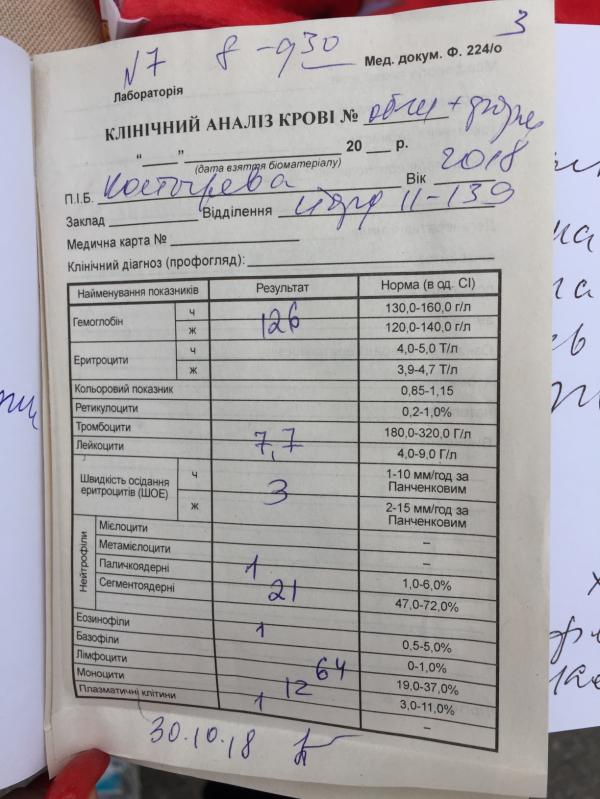 N7 8-9 30 3
Мед. докум. Ф. 224/о
Лабораторія
КЛІНІЧНИЙ АНАЛІЗ КРОВІ №
"____" ____________ 20 ___ р.
(дата взяття біоматеріалу)
П.І.Б. Вік 2018
Заклад Відділення 11-139
Медична карта №
Клінічний діагноз (профогляд):
Найменування показників Результат Норма (в од. СІ)
Гемоглобін ч 126 130,0-160,0 г/л
ж 120,0-140,0 г/л
Еритроцити ч 4,0-5,0 Т/л
ж 3,9-4,7 Т/л
Кольоровий показник 0,85-1,15
Ретикулоцити 0,2-1,0%
Тромбоцити 180,0-320,0 Г/л
Лейкоцити 7,7 4,0-9,0 Г/л
Швидкість осідання еритроцитів (ШОЕ) ч 3 1-10 мм/год за Панченковим
ж 2-15 мм/год за Панченковим
Нейтрофіли Мієлоцити –
Метамієлоцити –
Паличкоядерні 1 1,0-6,0%
Сегментоядерні 21 47,0-72,0%
Еозинофіли 1 0,5-5,0%
Базофіли 0-1,0%
Лімфоцити 64 19,0-37,0%
Моноцити 12 3,0-11,0%
Плазматичні клітини 1 –
30.10.18